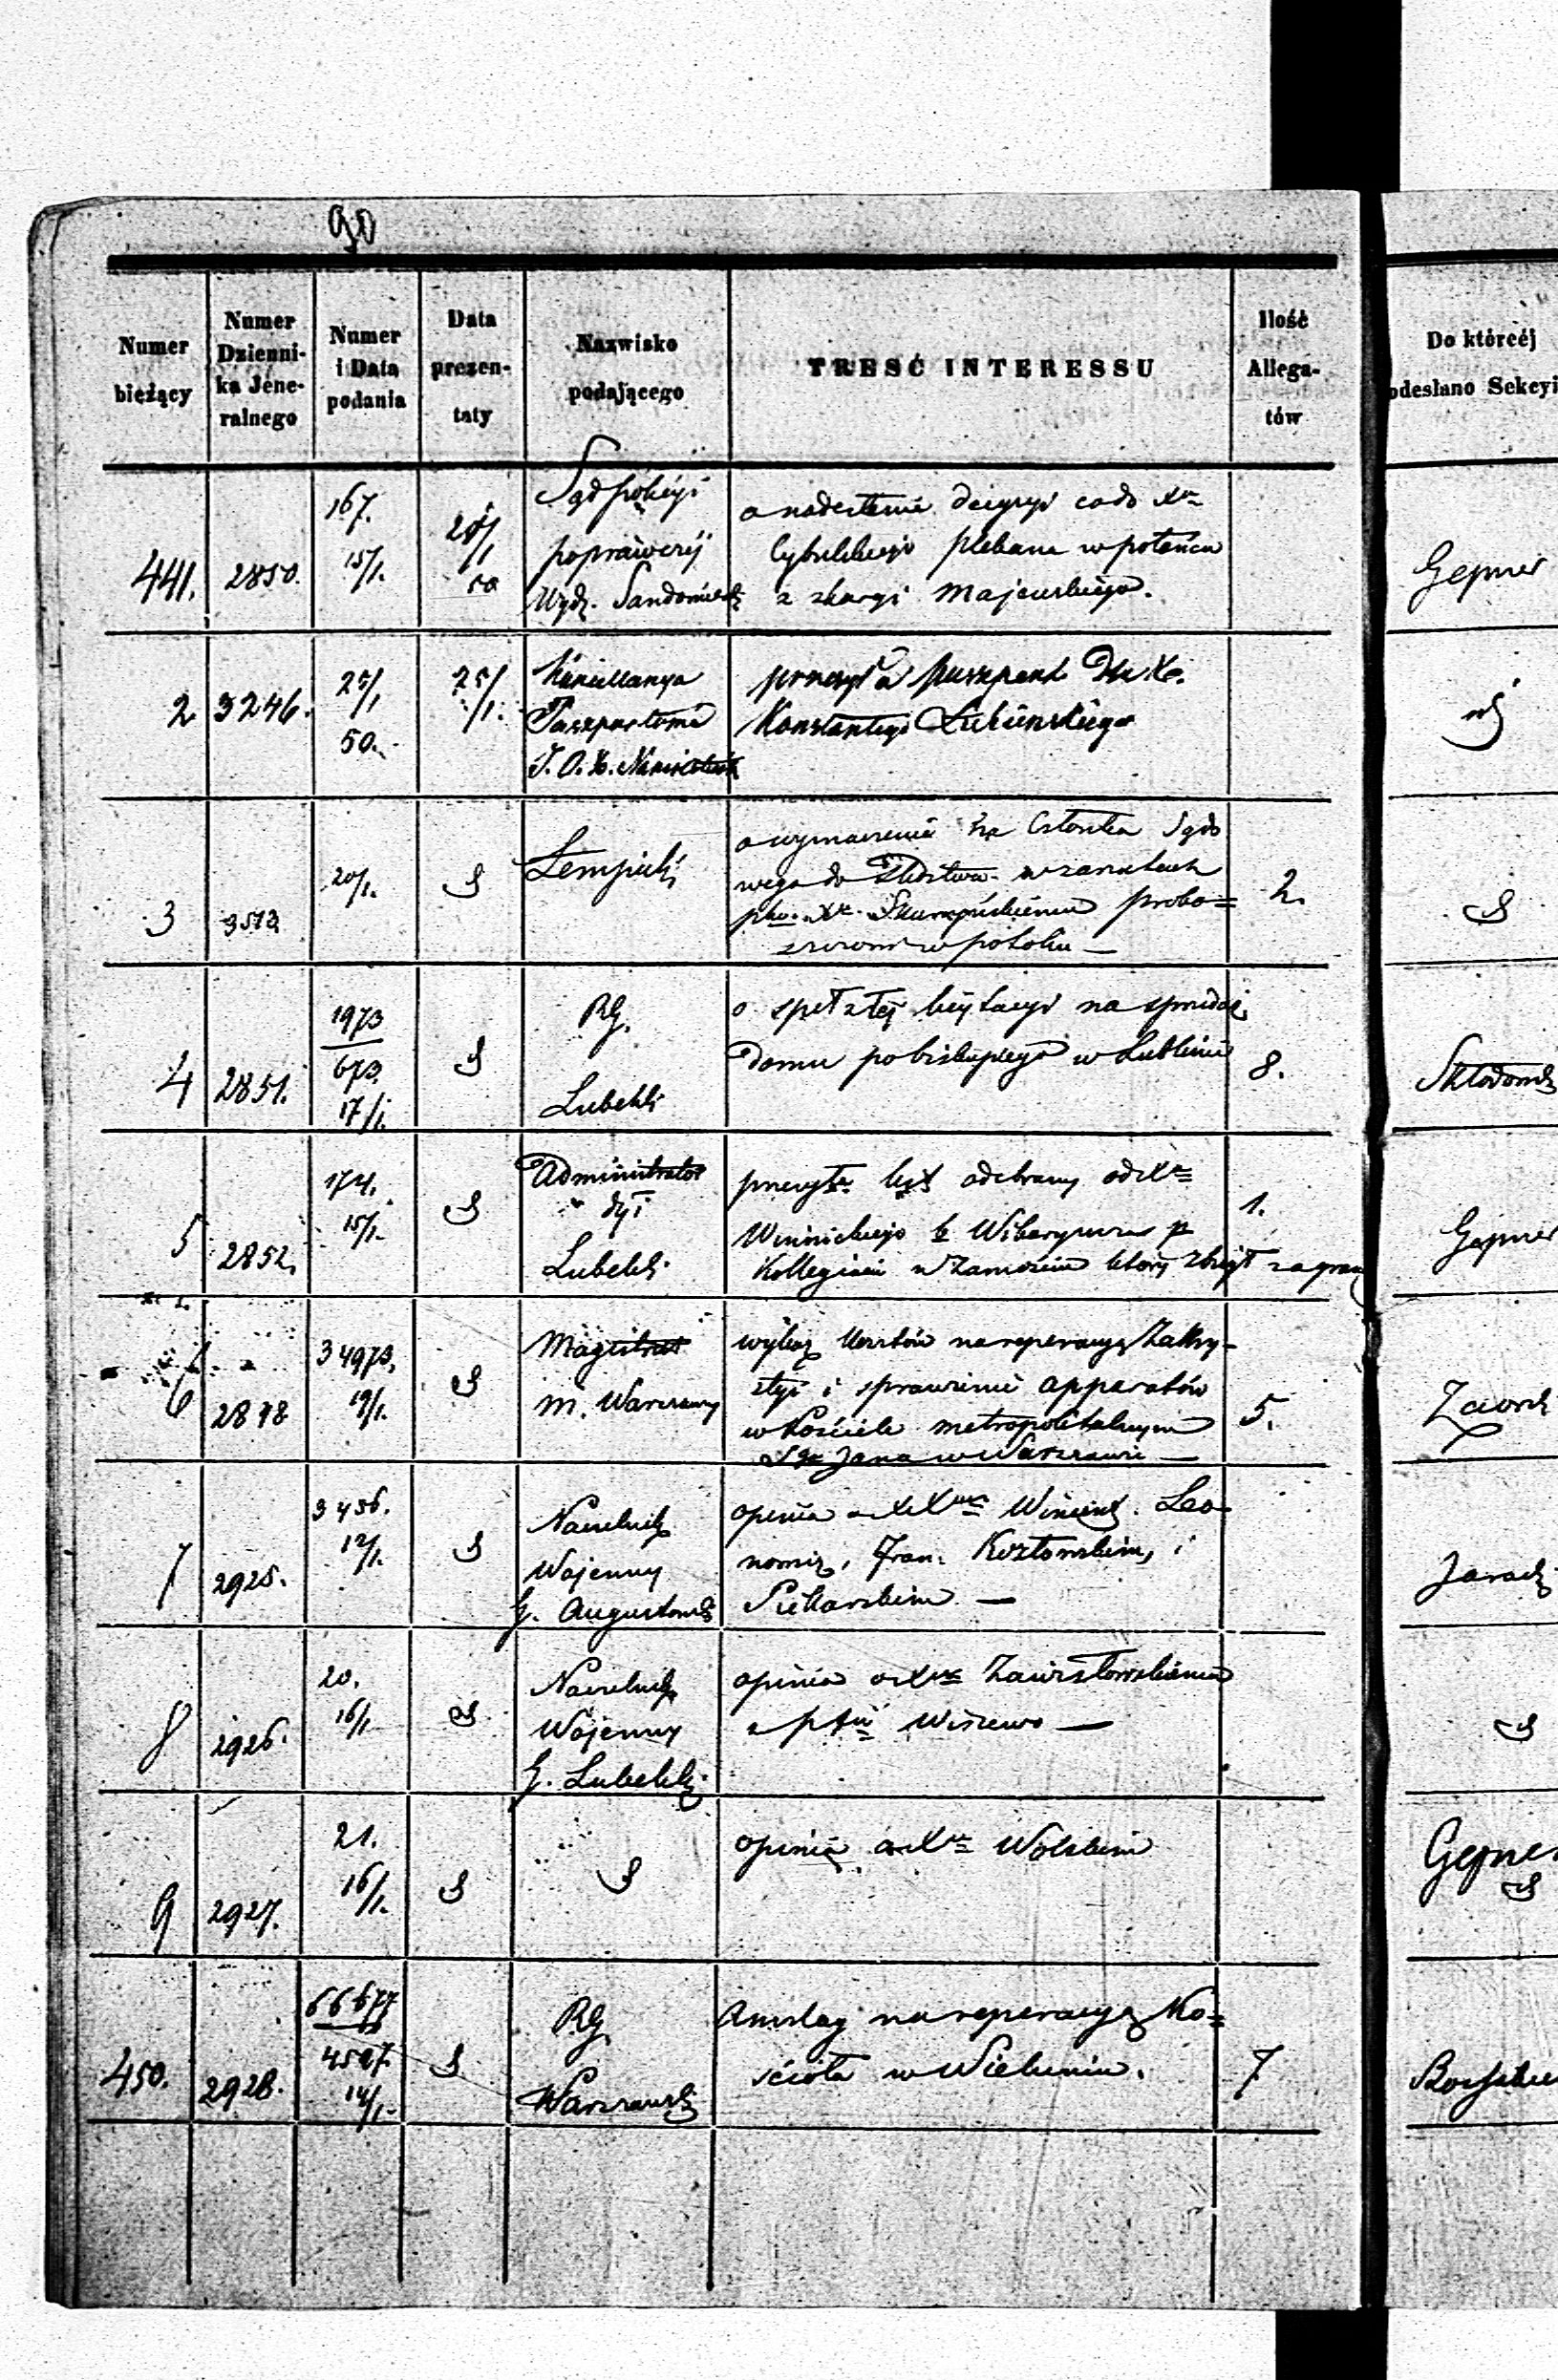 90
Numer bieżący
Numer Dzienni-ka Jéne-ralnego
Numer i Data podania
Data prezen-taty
Nazwisko podającego
TREŚĆ INTERESSU
Ilość Allega-tów
Do któréj odesłano Sekcyi
441. 2850. 167. 15/1. 28/1 50
Sąd policyi
poprawczéj
Wydz. Sandomiersk
o nadesłanie decyzyi co do Xa
Cybulskiego plebana w połańcu
z skargi Majewskiego.
Gepner
2. 3246. 25/1 50. 25/1.
Kancellarya
Paszportowa
J. O. X. Namiestnik
przesyła paszport dla X.
Konstantego Łubieńskiego
3 3573 20/1.
Łempicki
o wyznaczenie na Członka Sądo
wego do śledztwa w zarzutach
pko Xu probo=
szczowi w potoku —
2.
4 2851. 1973 673 17/1.
RG.
Lubelski
o spełzłej licytacyi na sprzedaż
Domu po biskupiego w Lublinie
8.
Skłodowsk
5 2852. 174. 15/1.
Administrator
dyi
Lubelski
przesyła list odebrany od Xa
Winnickiego b Wikaryusza p
Kollegiacie w Zamościu który zbiegł zagran
1.
Gepner
6 2878 34973. 19/1.
Magistrat
M. Warszawy
wykaz kosztów na reperacyą Zakry-
styi i sprawienie apparatów
w Kościele metropolitalnym
Sgo Jana w Warszawie —
5.
7 2925. 3456. 12/1.
Naczelnik
Wojenny
G. Augustowsk
opinia o XX Wincent. Leo-
Fran. Kozłowskim, i
Piekarskim —
8 2926. 20. 16/1
Naczelnik
Wojenny
G. Lubelski
opinia o Xu Zawistowskim
z ptu
9 2927. 21. 16/1.
opinią o Xu Wolskim
Gepner
450. 2928. 66677 4597. 14/1.
RG
Warszawski
Anszlag na reperacyą Ko=
ścioła w Wieluniu.
7